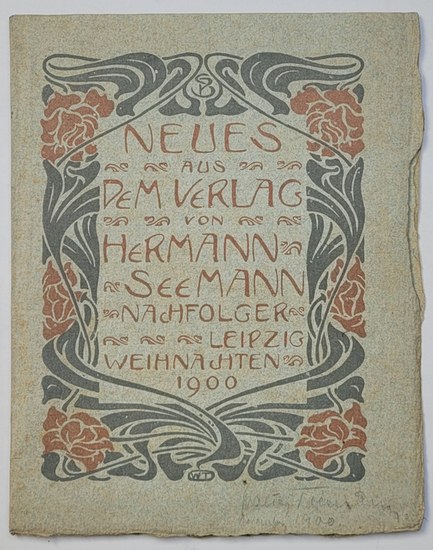 NEUES
AUS
DEM VERLAG
VON
HERMANN
SEEMANN
NACHFOLGER
LEIPZIG
WEIHNACHTEN
1900
WT
1900